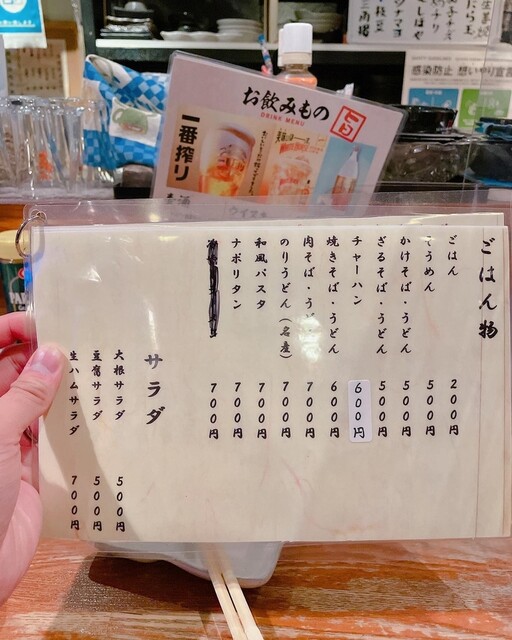 ごはん物
ごはん 200円
そうめん 500円
かけそば・うどん 500円
ざるそば・うどん 500円
チャーハン 600円
焼きそば・うどん 600円
肉そば・うどん 700円
のりうどん(名産) 700円
和風パスタ 700円
ナポリタン 700円
700円
サラダ
大根サラダ 500円
豆腐サラダ 500円
生ハムサラダ 700円
お飲みもの
DRINK MENU
一番搾り
感染防止 思いやり宣言